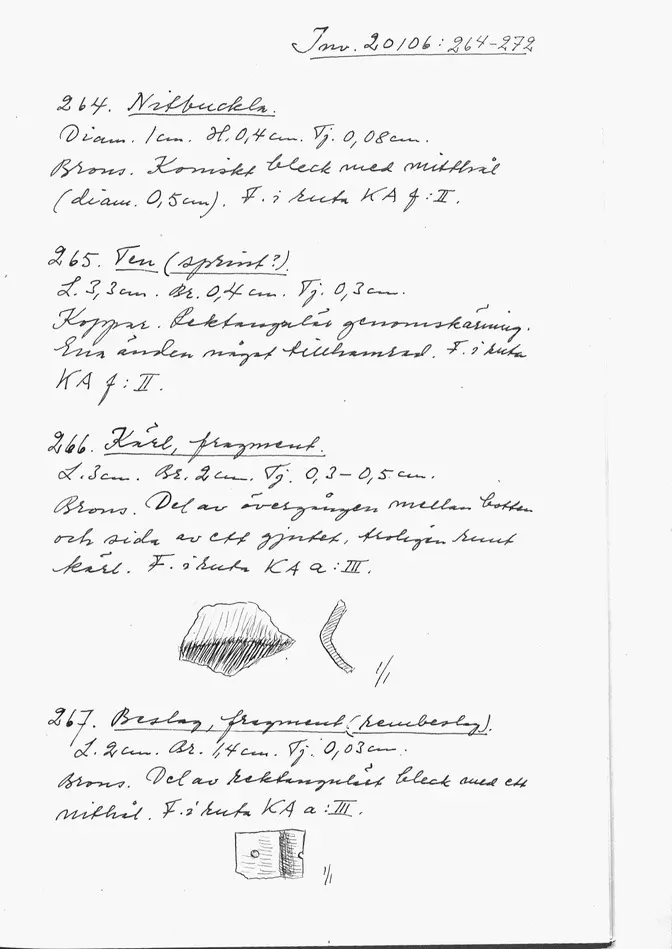 Inv. 20106:264-272
264. Nitbuckla.
Diam. 1cm. H. 0,4cm. Tj. 0,08cm.
Brons. Koniskt bleck med mitthål
(diam. 0,5cm). F. i ruta KA f:II.
265. Ten (sprint?).
L. 3,3cm. Br. 0,4cm. Tj. 0,3cm.
Koppar. Rektangulär genomskärning.
Ena änden något tillhamrad. F. i ruta
KA f:II.
266. Kärl, fragment.
L. 3cm. Br. 2cm. Tj. 0,3-0,5cm.
Brons. Del av övergången mellan botten
och sida av ett gjutet, troligen runt
kärl. F. i ruta KA a:III.
1/1
267. Beslag, fragment (rembeslag).
L. 2cm. Br. 1,4cm. Tj. 0,03cm.
Brons. Del av rektangulärt bleck med ett
nithål. F. i ruta KA a:III.
1/1